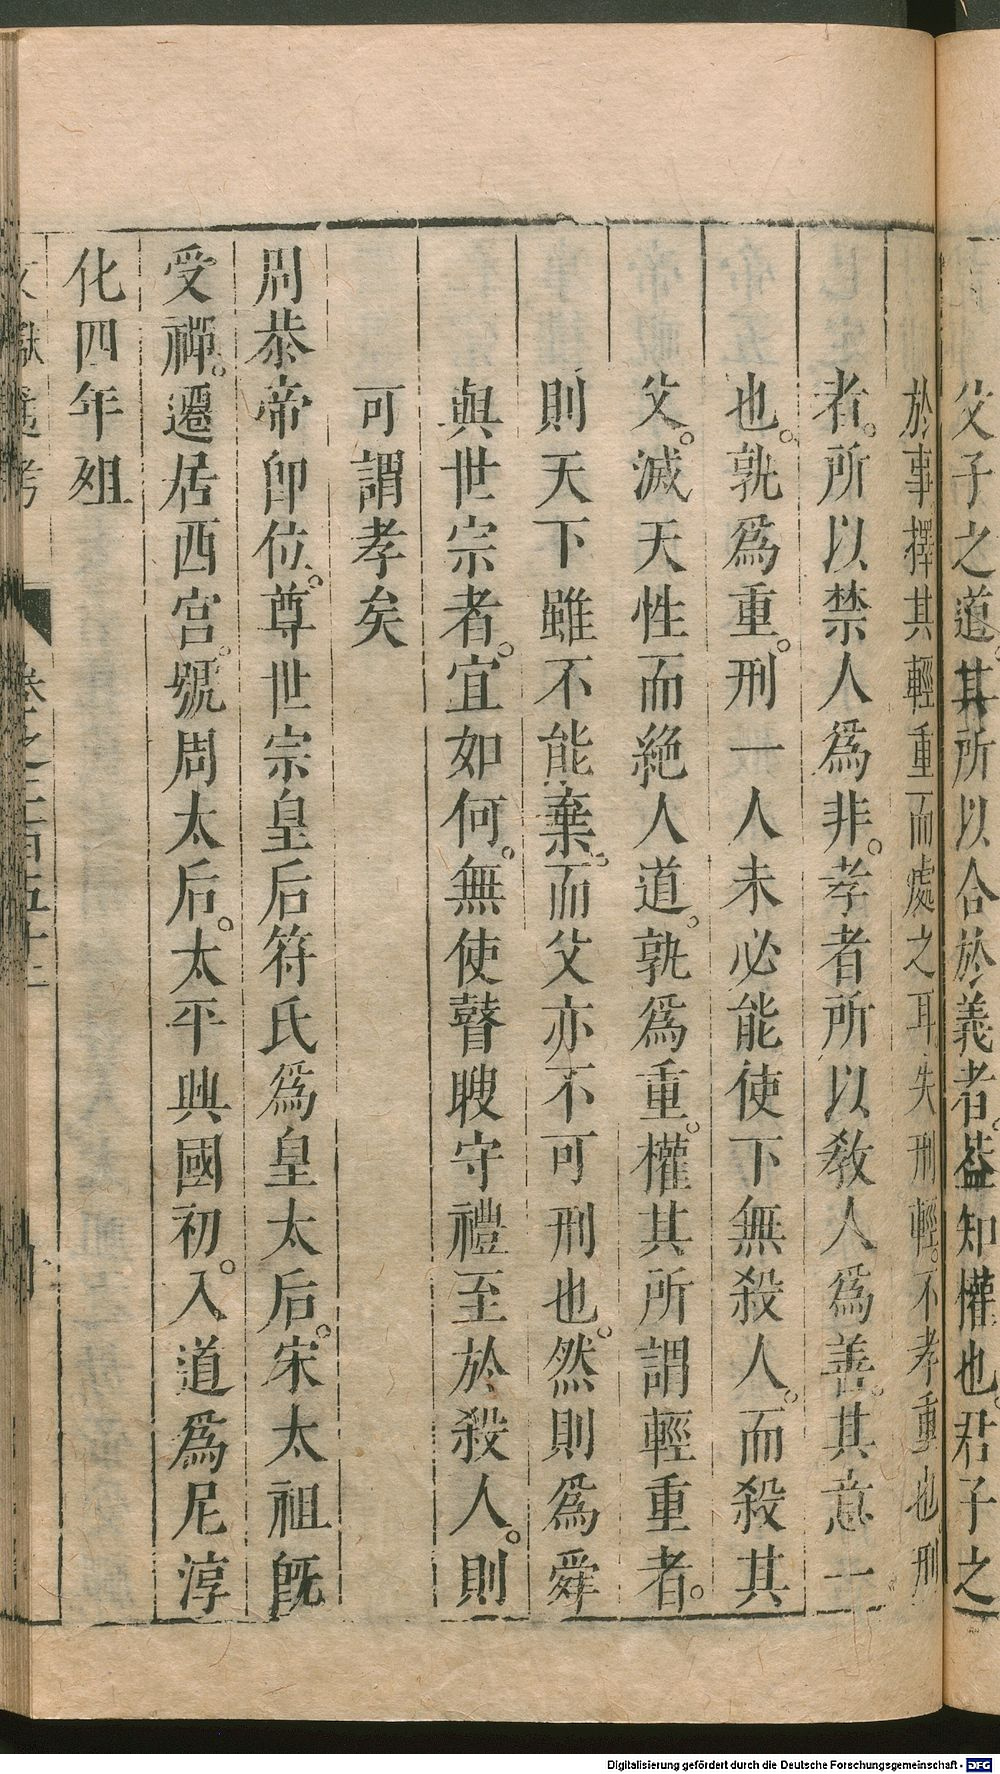 父子之道。其所以合於義者。蓋知權也。君子之
於事擇其輕重而處之耳失刑輕。不孝重也刑
者。所以禁人爲非。孝者所以教人爲善。其意一
也。孰爲重。刑一人未必能使下無殺人。而殺其
父。滅天性而絕人道。孰爲重。權其所謂輕重者。
則天下雖不能棄。而父亦不可刑也。然則爲舜
與世宗者。宜如何。無使瞽瞍守禮至於殺人。則
可謂孝矣
周恭帝卽位。尊世宗皇后符氏爲皇太后。宋太祖旣
受禪。遷居西宮。號周太后。太平興國初。入道爲尼淳
化四年殂
文獻通考
卷之二百五十二
Digitalisierung gefördert durch die Deutsche Forschungsgemeinschaft - DFG